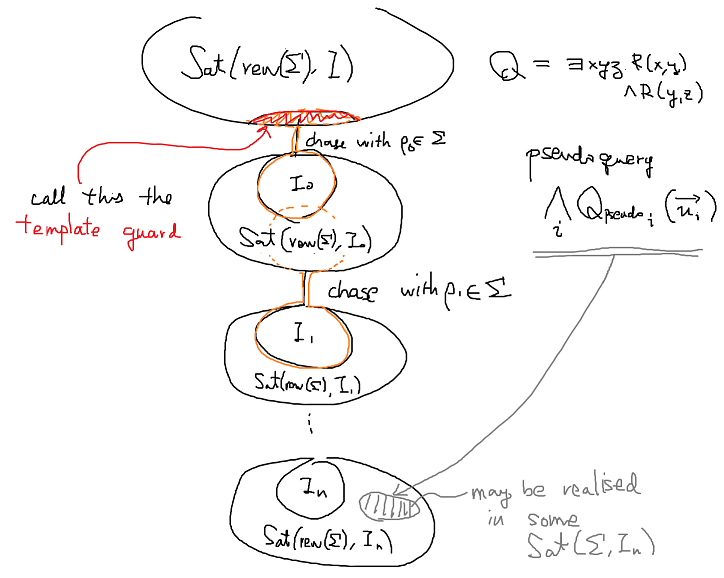 Sat(rew(Σ), I)
Q = ∃xyz. R(x,y)
∧R(y,z)
chase with ρ₀ ∈ Σ
call this the
template guard
I₀
Sat(rew(Σ), I₀)
pseudoquery
⋀ᵢ Q_pseudoᵢ(u⃗ᵢ)
chase with ρ₁ ∈ Σ
I₁
Sat(rew(Σ), I₁)
⋮
Iₙ
Sat(rew(Σ), Iₙ)
may be realised
in some
Sat(Σ, Iₙ)